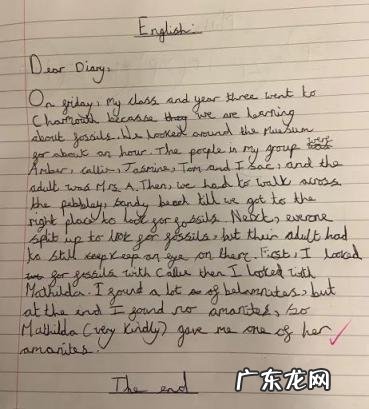 English:
Dear Diary,
On friday, my class and year three went to
Charmouth because they we are learning
about fossils. We looked around the Muesum
for about an hour. The people in my group were
Amber, Callie, Jasmine, Tom and Isac, and the
adult was Mrs A. Then, we had to walk across
the pebbley, sandy beach till we got to the
right place to look for fossils. Next, everone
split up to look for fossils, but their adult had
to still keep an eye on them. First, I looked
for fossils with Callie then I looked with
Mathilda. I found a lot of belamnites, but
at the end I found no amanites, so
Mathilda (very kindly) gave me one of her
amanites.
The end
广东龙网